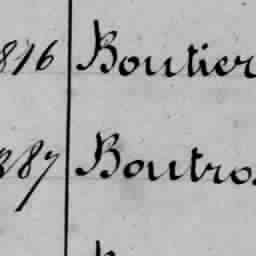 816 Boutier
387 Boutros